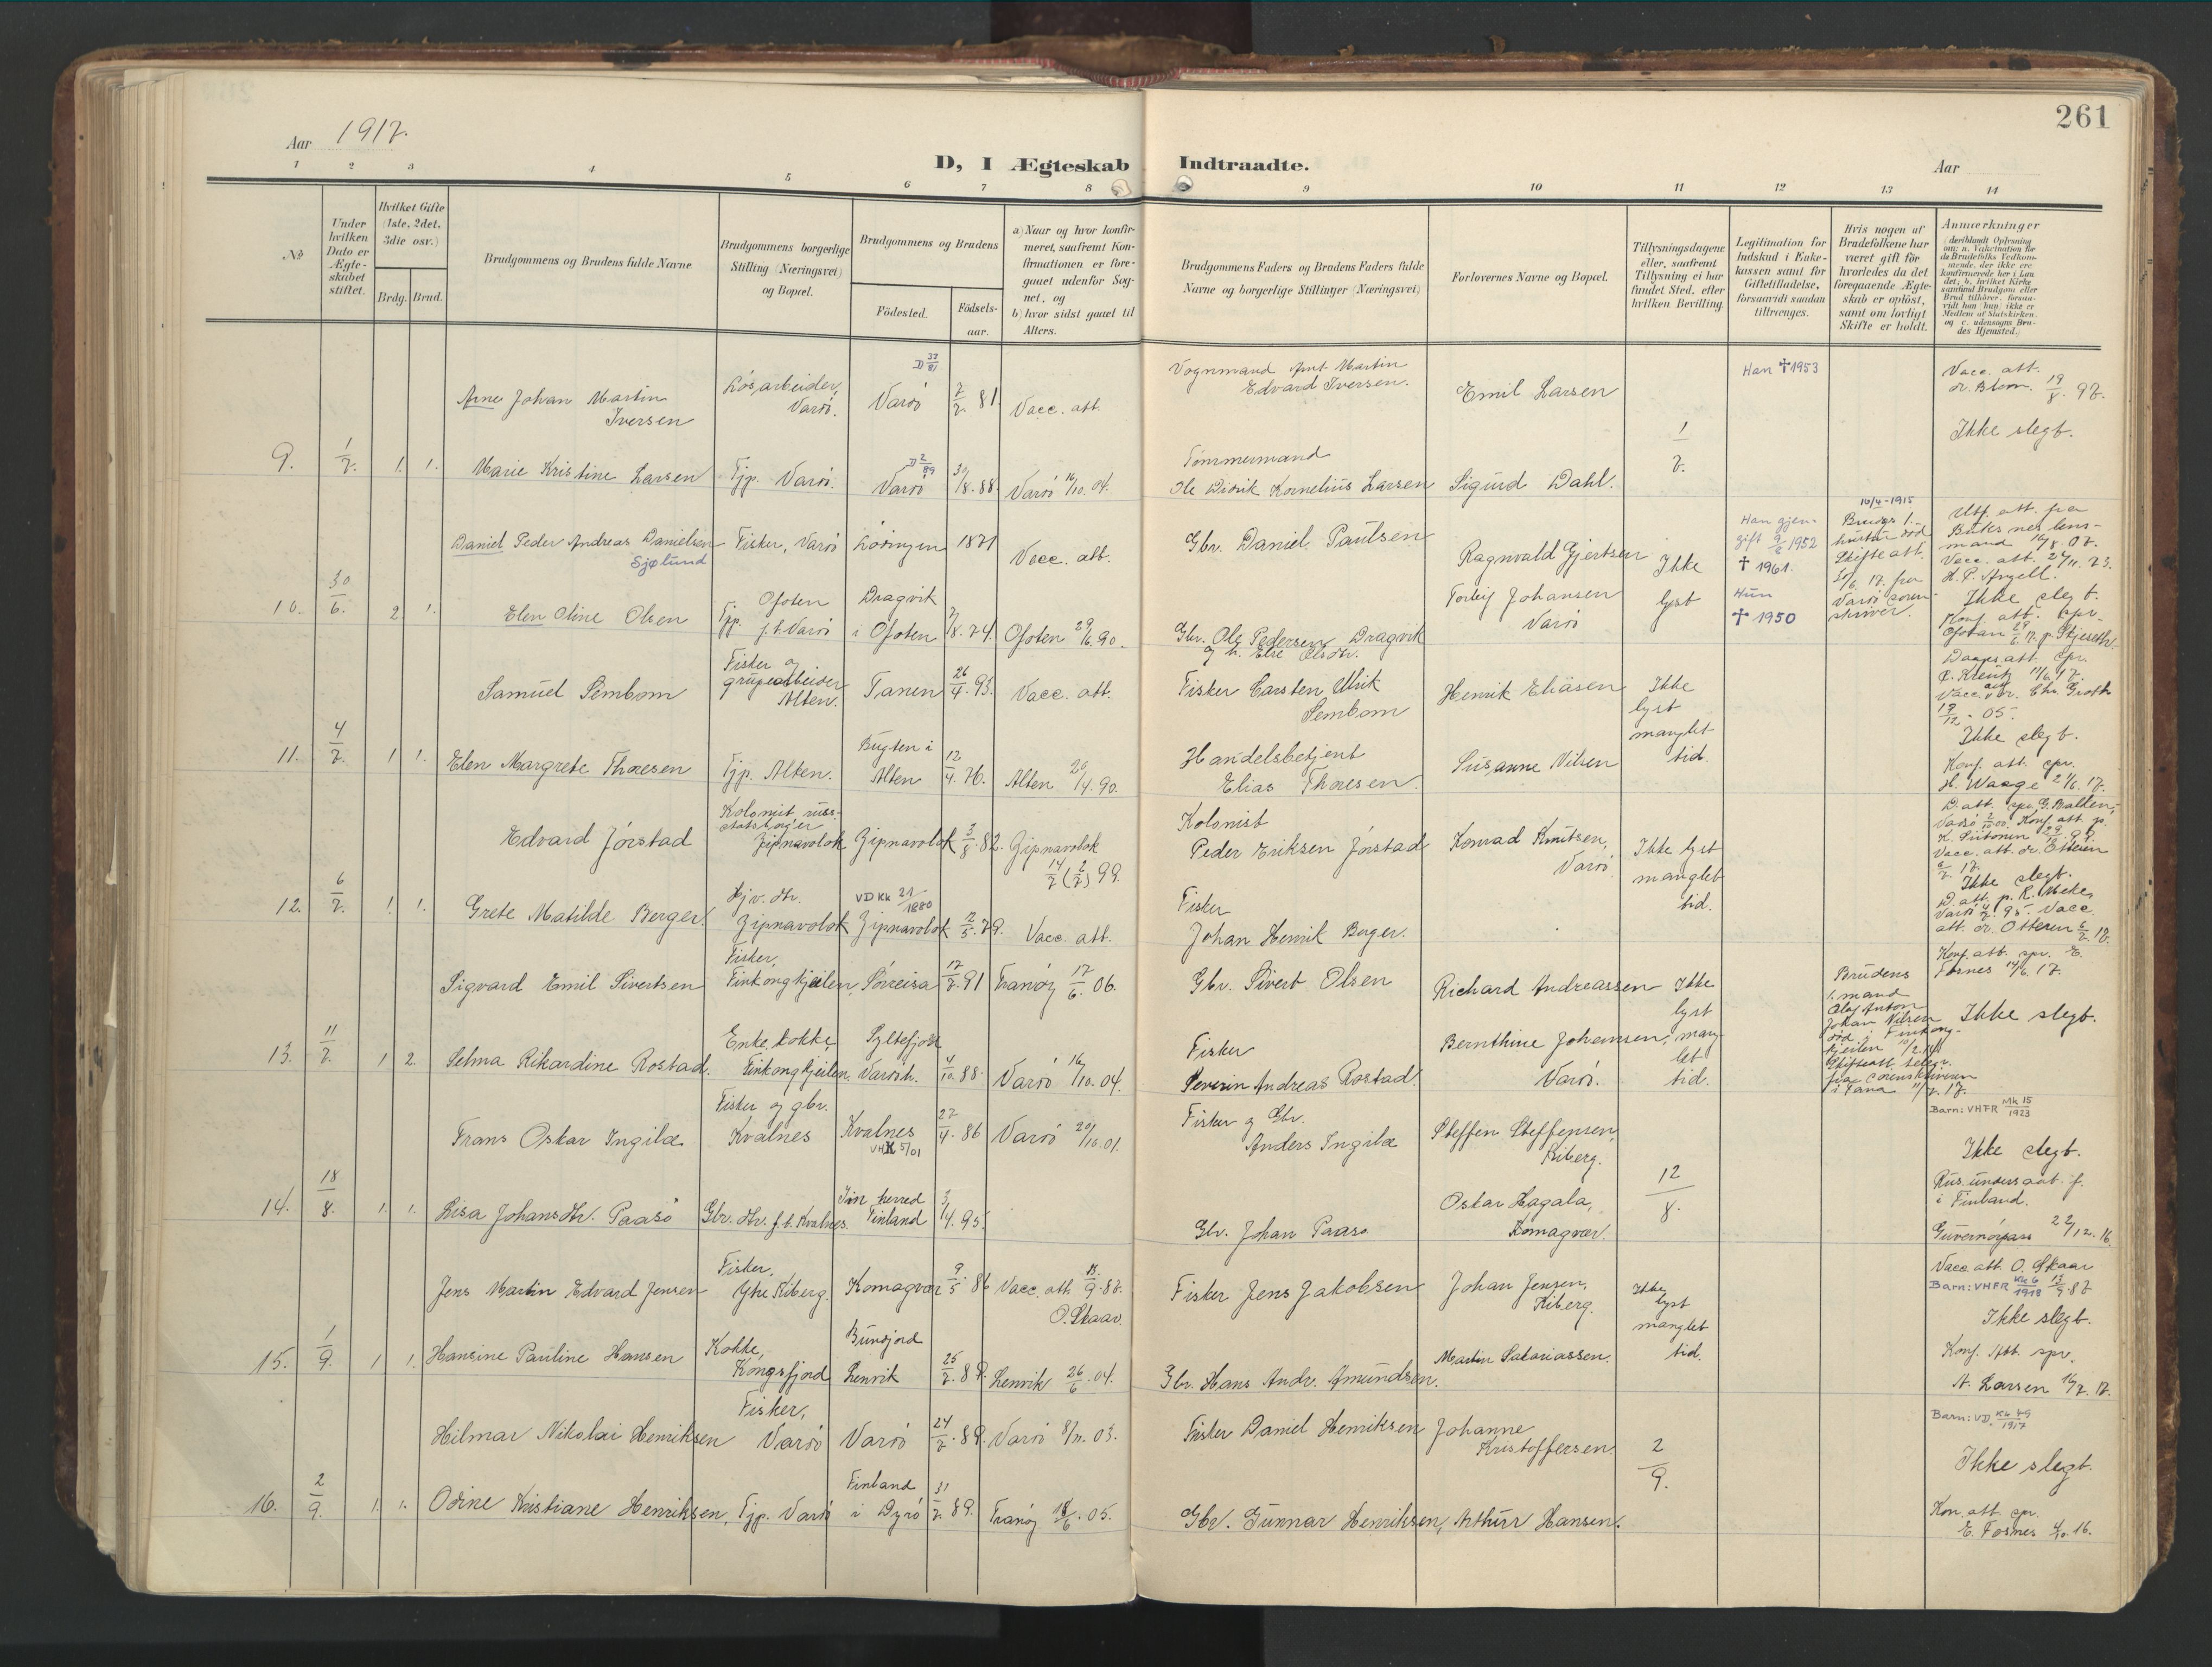 261
Aar 1917.
D, I Ægteskab Indtraadte.
Aar
1 2 3 4 5 6 7 8 9 10 11 12 13 14
No
Under hvilken Dato er Ægteskabet stiftet.
Hvilket Gifte (1ste, 2det, 3die osv.)
Brdg. Brud.
Brudgommens og Brudens fulde Navne
Brudgommens borgerlige Stilling (Næringsvei) og Bopæl.
Brudgommens og Brudens
Fødested. Fødselsaar.
a) Naar og hvor konfirmeret, saafremt Konfirmationen er foregaaet udenfor Sognet, og
b) hvor sidst gaaet til Alters.
Brudgommens Faders og Brudens Faders fulde Navne og borgerlige Stillinger (Næringsvei)
Forlovernes Navne og Bopæl.
Tillysningsdagene eller, saafremt Tillysning ei har fundet Sted, efter hvilken Bevilling.
Legitimation for Indskud i Enkekassen samt for Giftetilladelse, forsaavidt saadan tiltrænges.
Hvis nogen af Brudefolkene har været gift før hvorledes da det foregaaende Ægteskab er opløst, samt om lovligt Skifte er holdt.
Anmærkninger
Arne Johan Martin Iversen
Løsarbeider, Varø.
Varø 7/2. 81
Vacc. att.
Vognmand Arnt Martin Edvard Iversen.
Emil Larsen
Han † 1953
Vacc. att. dr. Blom. 19/8. 97.
Ikke slegt.
9. 1/7. 1. 1.
Marie Kristine Larsen
Tjp. Varø.
Varø 30/8. 88. Varø 16/10. 04.
Tømmermand
Ole Didrik Kornelius Larsen
Sigurd Dahl.
1/7.
Daniel Peder Andreas Danielsen
Sjølund
Fisker, Varø
Lødingen 1871
Vacc. att.
Gbr. Daniel Paulsen
Ragnvald Gjertsen
Ikke lyst
Han gjengift 9/8 1952
† 1961.
10/4-1915
Vacc. att. 27/11. 73.
H. P. Angell.
10. 30/6. 2. 1.
Elen Oline Olsen
Tjp. Ofoten f.t. Varø
Dragvik i Ofoten 7/8. 74. Ofoten 29/6. 90.
Gbr. Ole Pedersen Dragvik
og h. Else Olsdtr.
Torleif Johansen
Varø
Hun † 1950
Ikke slegt.
Konf. att. spr.
Samuel Sembom
Fisker og grubearbeider Alten.
Tanen 26/4. 93. Vacc. att.
Fisker Carsten Ulrik Sembom
Henrik Eliasen
Ikke lyst manglet tid.
11. 4/7. 1 1.
Elen Margrete Thoresen
Tjp. Alten.
Bugten i Alten 12/4. 76. Alten 20/4. 90.
Handelsbetjent
Elias Thoresen.
Susanne Nilsen
Ikke slegt.
Konf. att. spr.
H. Waage 21/6. 17.
Edvard Jørstad
Kolonist russ. statsborger Zipnavolok
Zipnavolok 3/8. 82. Zipnavolok 14/7 (2/7) 99.
Kolonist
Peder Eriksen Jørstad
Konrad Knutsen, Varø
Ikke lyst manglet tid.
12. 6/7. 1. 1.
Grete Matilde Berger.
Hjv. dtr. Zipnavolok
VD Kk 21/1880
Zipnavolok 12/5. 79. Vacc. att.
Fisker
Johan Henrik Berger.
Ikke slegt.
Sigvard Emil Sivertsen
Fisker, Finkongkjeilen,
Sørreisa 17/7. 91 Tranøy 17/6. 06.
Gbr. Sivert Olsen
Richard Andreassen
Ikke lyst, manglet tid.
Brudens 1. mand Olaf Anton Johan Nilsen
Konf. att. spr. E. Fosnes 14/6. 17.
Ikke slegt.
13. 11/7. 1 2.
Selma Rikardine Rostad.
Enke, kokke, Finkongkjeilen.
Syltefjord Varøh. 4/10. 88. Varø 16/10. 04.
Fisker
Severin Andreas Rostad.
Bernthine Johansen, Varø.
Barn: VHFR Mk 15/1923
Frans Oskar Ingilæ
Fisker og gbr. Kvalnes
Kvalnes 27/4. 86 Varø 20/10. 01.
Fisker og Gbr.
Anders Ingilæ
Steffen Steffensen, Kiberg.
Ikke slegt.
14. 18/8. 1. 1.
Lisa Johansdtr. Paaso
Gbr. dtr. f.t. Kvalnes.
Finland 3/4. 95.
Gbr. Johan Paaso
Oskar Hagala, Komagvær.
12/8.
Rus. undersaat f. i Finland.
Guvernørpass 22/12. 16.
Jens Martin Edvard Jensen
Fisker, Ytre Kiberg.
Komagvær 9/5. 86 Vacc. att. 13/9. 87. O. Skaar.
Fisker Jens Jakobsen
Johan Jensen, Kiberg.
Ikke lyst manglet tid.
Vacc. att. O. Skaar 13/9. 87
Barn: VHFR Kk 6/1918
Ikke slegt.
15. 1/9. 1 1.
Hansine Pauline Hansen
Kokke, Kongsfjord
Lenvik 25/7. 89. Lenvik 26/6. 04.
Gbr. Hans Andr. Amundsen.
Martin Sakariassen.
Konf. Att. spr.
A. Larsen 16/7. 17.
Hilmar Nikolai Henriksen
Fisker, Varø
Varø 24/7. 89. Varø 8/11. 03.
Fisker Daniel Henriksen
Johanne Kristoffersen
2/9.
Barn: VD. Kk 49/1917
Ikke slegt.
16. 2/9. 1. 1.
Odine Kristiane Henriksen,
Tjp. Varø
Finland i Dyrø 31/7. 89. Tranøy 18/6. 05.
Gbr. Gunnar Henriksen,
Arthur Hansen.
Kon. att. spr.
E. Fosnes 4/10. 16.